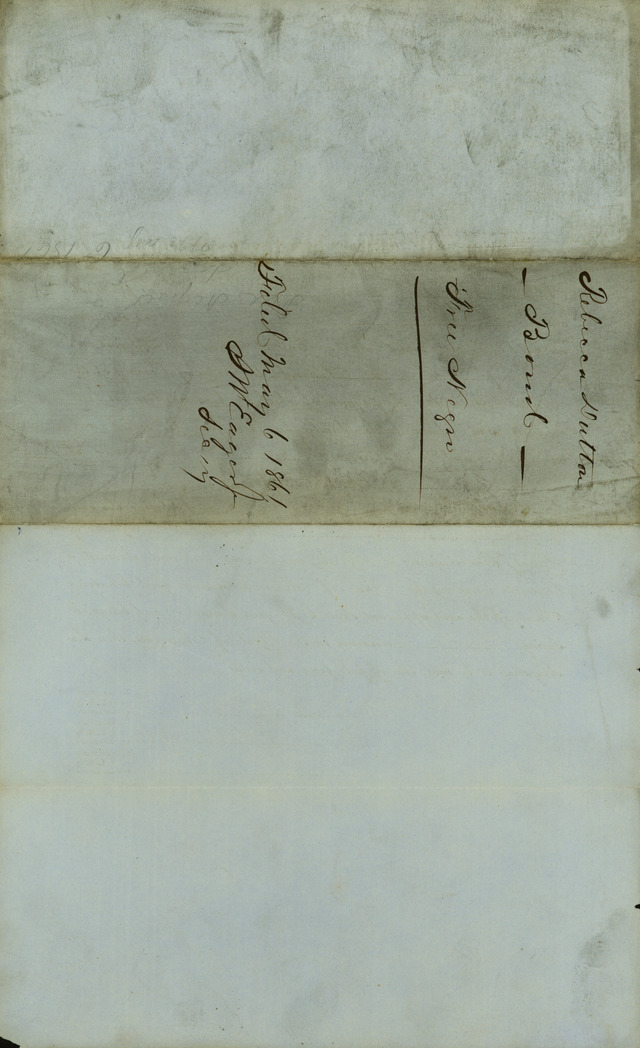 Rebecca Dutton
— Bond —
Free Negro
Filed May 6 1861
J M Eager